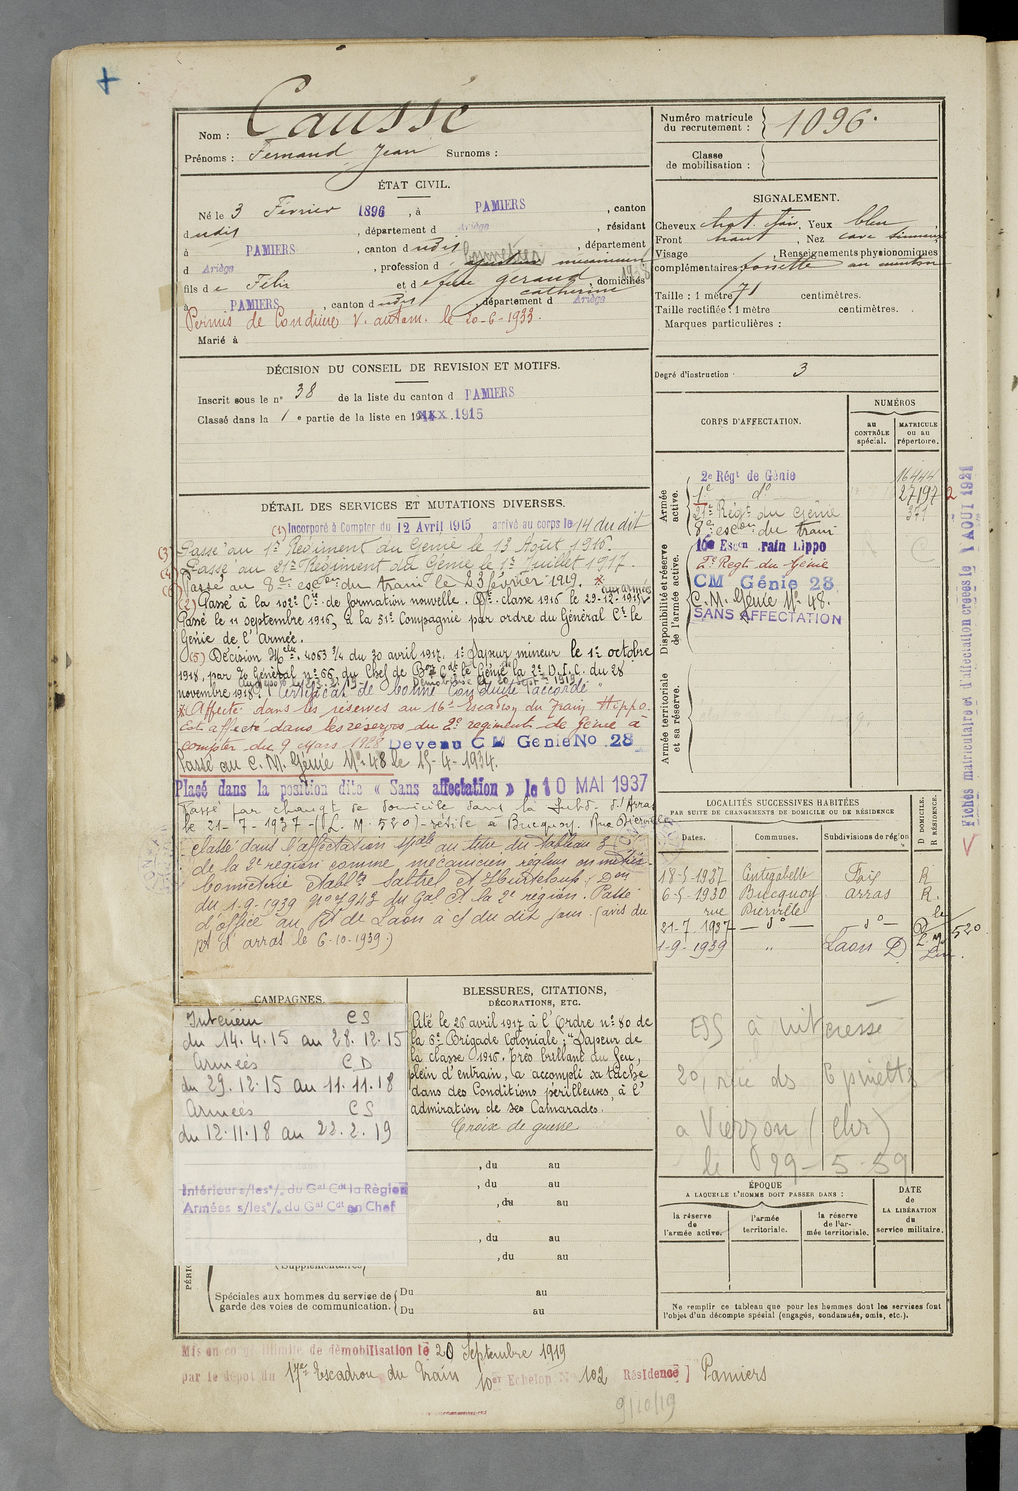 Nom : Caussé
Prénoms : Fernand Jean Surnoms :
Numéro matricule du recrutement : 1096.
Classe de mobilisation :
ÉTAT CIVIL.
Né le 3 Février 1896, à PAMIERS, canton
dudit, département d Ariège, résidant
à PAMIERS, canton dudit, département
d Ariège, profession d mécanicien
fils de Félix et de feue Geraud Catherine, domiciliés
à PAMIERS, canton dudit, département d Ariège
Permis de Conduire V. autom. le 20-6-1933.
Marié à
SIGNALEMENT.
Cheveux chat. clair, Yeux bleu
Front haut, Nez cave sinueux
Visage, Renseignements physionomiques
complémentaires fossette au menton
Taille : 1 mètre 71 centimètres.
Taille rectifiée : 1 mètre centimètres.
Marques particulières :
Degré d'instruction 3
DÉCISION DU CONSEIL DE REVISION ET MOTIFS.
Inscrit sous le n° 38 de la liste du canton d PAMIERS
Classé dans la 1e partie de la liste en 1915
DÉTAIL DES SERVICES ET MUTATIONS DIVERSES.
(1) Incorporé à Compter du 12 Avril 1915 arrivé au corps le 14 du dit
(3) Passé au 1er Régiment du Génie le 13 Août 1916.
(4) Passé au 21e Régiment du Génie le 1er Juillet 1917.
(6) Passé au 8e escon du train le 23 février 1919. *
(2) Passé à la 102e Cie de formation nouvelle. classe 1916 le 29-12-1915 aux armées
Passé le 11 septembre 1916, à la 51e Compagnie par ordre du Général Ct le
Génie de l'Armée.
(5) Décision Mle 4063 3/4 du 30 avril 1917. 1er Sapeur mineur le 1er octobre
1918, par Go Général n° 66 du Chef de Bon Cdt le Génie de la 2e D.I.C. du 28
novembre 1918. Certificat de bonne conduite "accordé"
* Affecté dans les réserves au 16e Escadron du Train Hippo.
Est affecté dans les réserves du 2e régiment de génie à
compter du 9 mars 1928 Devenu C M Génie No 28
Passé au C. M. Génie No 48 le 15-4-1934.
Placé dans la position dite « Sans affectation » le 10 MAI 1937
Passé par changt de domicile dans la Subd. d'Arras
le 21-7-1937 (L. M. 520) - réside à Bucquoy. Rue Dierville
classé dans l'affectation spale au titre du tableau 3
de la 2e région comme mécanicien régleur en métiers
bonneterie Etablts Saltrel et Hurteloup. Don
du 1-9-1939 n° 7943 du Gal Ct la 2e région. Passé
d'office au de Laon à c/ du dit jour. (avis du
d'arras le 6-10-1939.)
CORPS D'AFFECTATION.
NUMÉROS
au CONTRÔLE spécial.
MATRICULE ou au répertoire.
Armée active.
2e Régt de Génie 16444
1e do 27197 2
21e Régt du Génie 371
8e escon du train
Disponibilité et réserve de l'armée active.
16e Escon Train Hippo
2e Regt du Génie
CM Génie 28
C. M. Génie No 48.
SANS AFFECTATION
Armée territoriale et sa réserve.
Fiches matriculaire et d'affectation créées le 1 AOUT 1921
LOCALITÉS SUCCESSIVES HABITÉES
PAR SUITE DE CHANGEMENTS DE DOMICILE OU DE RÉSIDENCE
Dates. Communes. Subdivisions de région D. DOMICILE. R. RÉSIDENCE.
18-5-1927 Cintegabelle Foix R
6-5-1930 Bucquoy arras R.
rue Dierville
21-7-1937 — do — — do — L. M. 520
1-9-1939 " Laon D
à intéressé
20, rue des Epinettes
à Vierzon (Cher)
le 29-5-59
CAMPAGNES.
Intérieur CS
du 14.4.15 au 28.12.15
Armées CD
du 29.12.15 au 11.11.18
Armées CS
du 12.11.18 au 22.2.19
Intérieur s/les o/. du Gal Cdt la Région
Armées s/les o/. du Gal Cdt en Chef
BLESSURES, CITATIONS,
DÉCORATIONS, ETC.
Cité le 26 avril 1917 à l'Ordre n° 80 de
la 6e Brigade Coloniale ; "Sapeur de
la classe 1916. très brillant au feu,
plein d'entrain, a accompli sa tâche
dans des Conditions périlleuses, à l'
admiration de ses Camarades.
Croix de guerre
, du au
, du au
, du au
, du au
, du au
(Supplémentaires)
Spéciales aux hommes du service de garde des voies de communication.
Du au
Du au
ÉPOQUE
A LAQUELLE L'HOMME DOIT PASSER DANS :
la réserve de l'armée active.
l'armée territoriale.
la réserve de l'armée territoriale.
DATE de LA LIBÉRATION du service militaire.
Ne remplir ce tableau que pour les hommes dont les services font
l'objet d'un décompte spécial (engagés, condamnés, omis, etc.).
Mis en congé illimité de démobilisation le 20 Septembre 1919
par le dépôt du 17e Escadron du Train 10e Echelon No 102 Résidence Pamiers
9/10/19